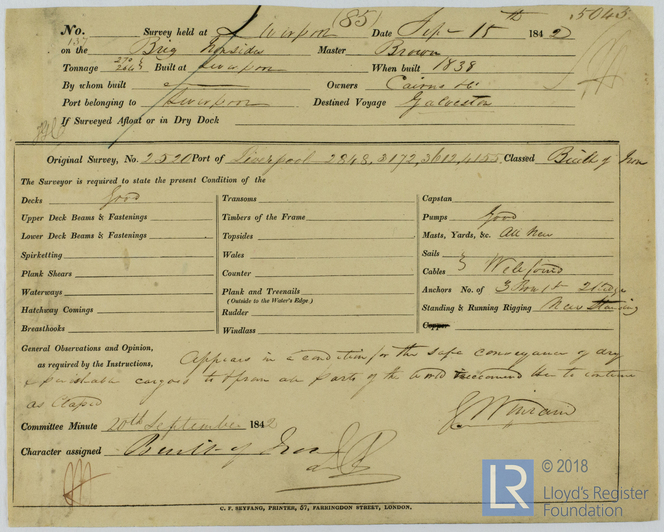 (85) 5045
No. 137 Survey held at Liverpool Date Sep 15th 1842
on the Brig Ironsides Master Brown
Tonnage 270 Built at Liverpool When built 1838
By whom built Owners Cairns &c
Port belonging to Liverpool Destined Voyage Galveston
If Surveyed Afloat or in Dry Dock
Original Survey, No. 2520 Port of Liverpool 2848, 3172, 3612, 4155 Classed Built of Iron
The Surveyor is required to state the present Condition of the
Decks Good
Upper Deck Beams & Fastenings
Lower Deck Beams & Fastenings
Spirketting
Plank Shears
Waterways
Hatchway Comings
Breasthooks
Transoms
Timbers of the Frame
Topsides
Wales
Counter
Plank and Treenails
(Outside to the Water's Edge.)
Rudder
Windlass
Capstan
Pumps Good
Masts, Yards, &c. All New
Sails
Cables Well found
Anchors No. of 3 Bow 1 St 2 Kedge
Standing & Running Rigging New Standing
Copper
General Observations and Opinion,
as required by the Instructions, Appears in a condition for the safe conveyance of dry
& perishable cargoes to & from all parts of the world recommend her to continue
as Classed
Committee Minute 20th September 1842
Character assigned Built of Iron
C. F. SEYFANG, PRINTER, 57, FARRINGDON STREET, LONDON.
LR © 2018
Lloyd's Register
Foundation